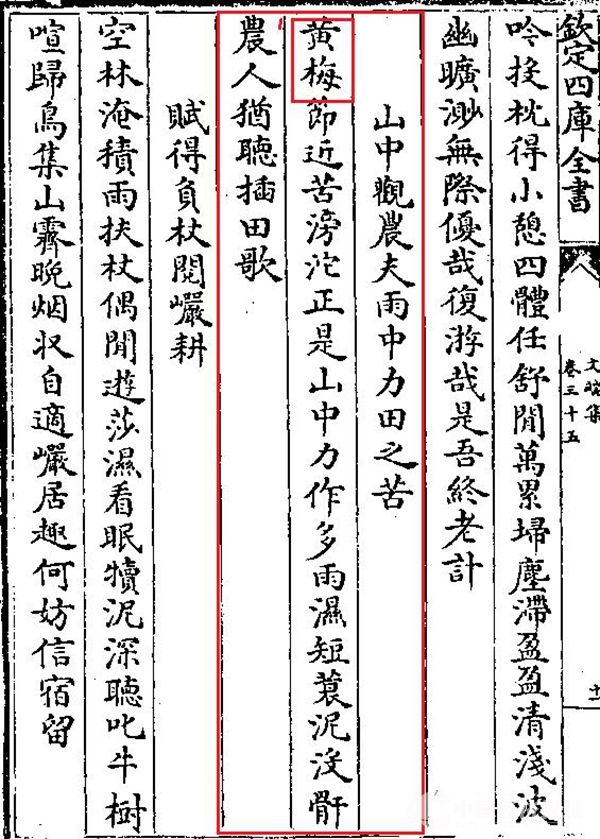 欽定四庫全書
文端集
卷三十五
十一
吟投枕得小憩四體任舒閒萬累埽塵滯盈盈清淺波
幽曠渺無際優哉復游哉是吾終老計
山中觀農夫雨中力田之苦
黄梅節近苦滂沱正是山中力作多雨濕短蓑泥没骭
農人猶聽插田歌
賦得負杖閱巖耕
空林淹積雨扶杖偶閒遊莎濕看眠犢泥深聽叱牛樹
喧歸鳥集山霽晚烟収自適巖居趣何妨信宿留